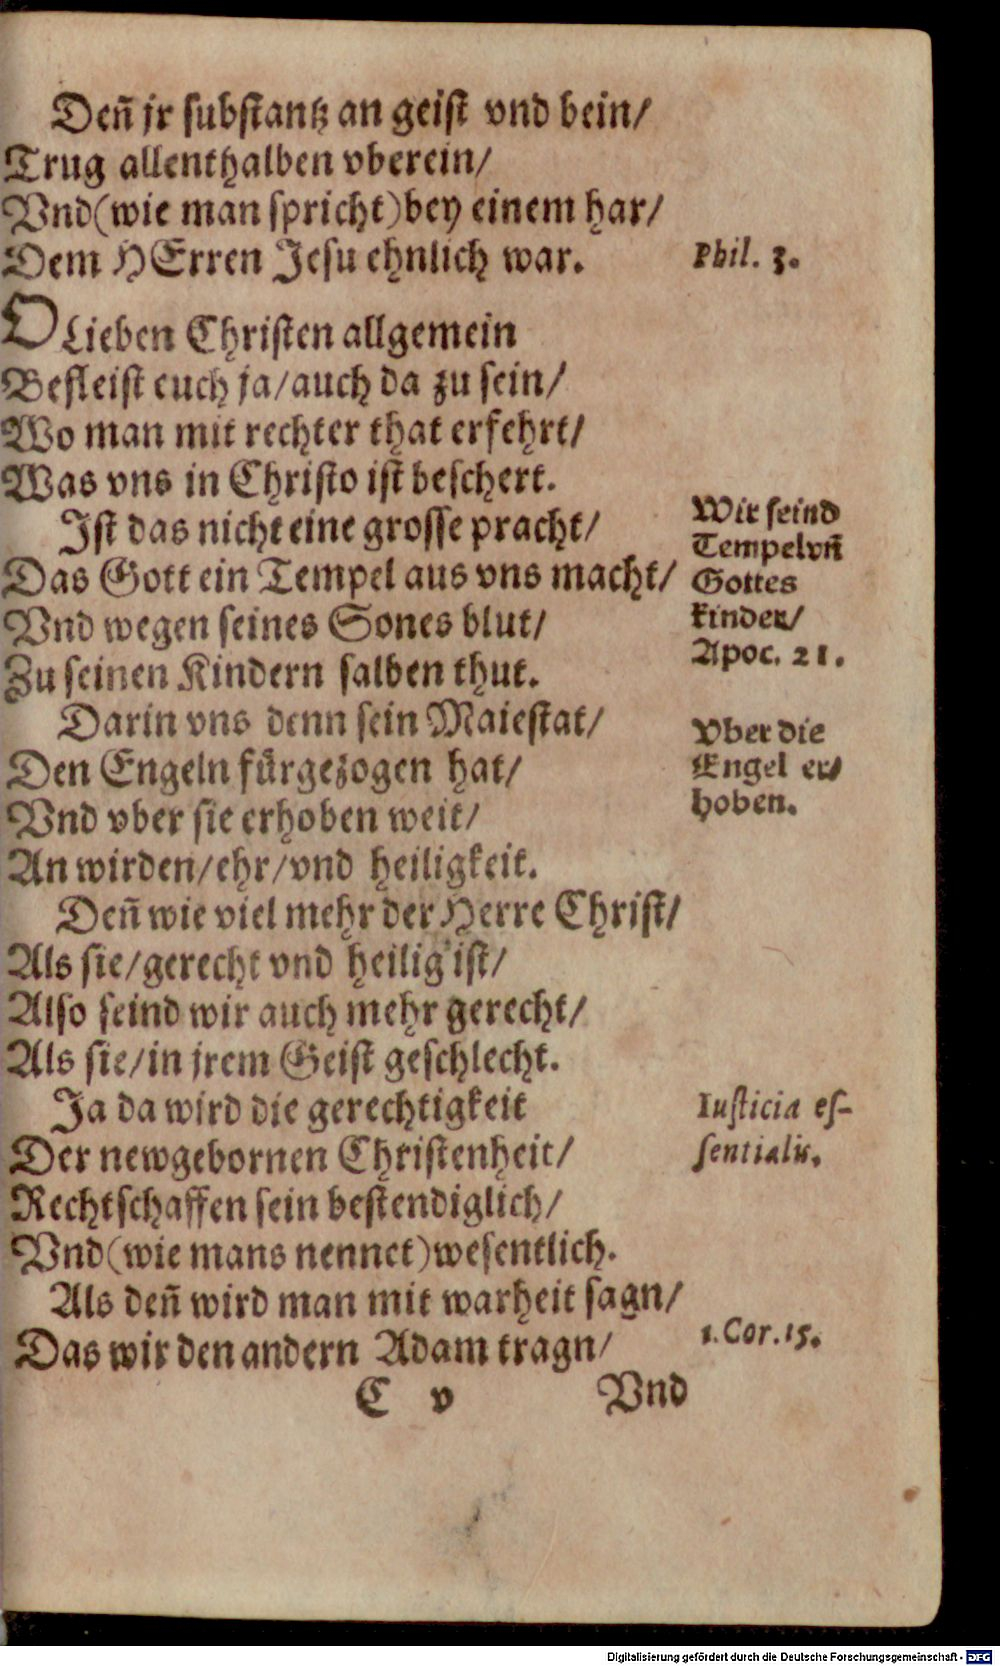 Deñ jr substantz an geist vnd bein/
Trug allenthalben vberein/
Vnd (wie man spricht) bey einem har/
Dem HErren Jesu ehnlich war.
Phil. 3.
O Lieben Christen allgemein
Befleist euch ja/auch da zu sein/
Wo man mit rechter that erfehrt/
Was vns in Christo ist beschert.
Ist das nicht eine grosse pracht/
Das Gott ein Tempel aus vns macht/
Vnd wegen seines Sones blut/
Zu seinen Kindern salben thut.
Wir seind
Tempel vñ
Gottes
kinder/
Apoc. 21.
Darin vns denn sein Maiestat/
Den Engeln fürgezogen hat/
Vnd vber sie erhoben weit/
An wirden/ehr/vnd heiligkeit.
Vber die
Engel er/
hoben.
Deñ wie viel mehr der Herre Christ/
Als sie/gerecht vnd heilig ist/
Also seind wir auch mehr gerecht/
Als sie/in jrem Geist geschlecht.
Ja da wird die gerechtigkeit
Der newgebornen Christenheit/
Rechtschaffen sein bestendiglich/
Vnd (wie mans nennet) wesentlich.
Iusticia es-
sentialis.
Als deñ wird man mit warheit sagn/
Das wir den andern Adam tragn/
1. Cor. 15.
C v Vnd
Digitalisierung gefördert durch die Deutsche Forschungsgemeinschaft - DFG